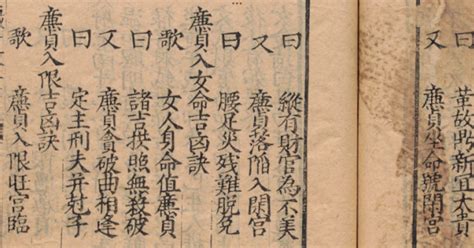 革故鼎新宜大貴
曰又　廉貞坐命號閑宮
曰　縱有財官為不美
又　廉貞落陷入閑宮
曰　腰足災殘難脫免
廉貞入女命吉凶訣
歌　女人身命值廉貞
曰　諸吉拱照無殺破
又　廉貞貪破曲相逢
曰　定主刑夫并尅子
廉貞入限吉凶訣
歌　廉貞入限旺宮臨